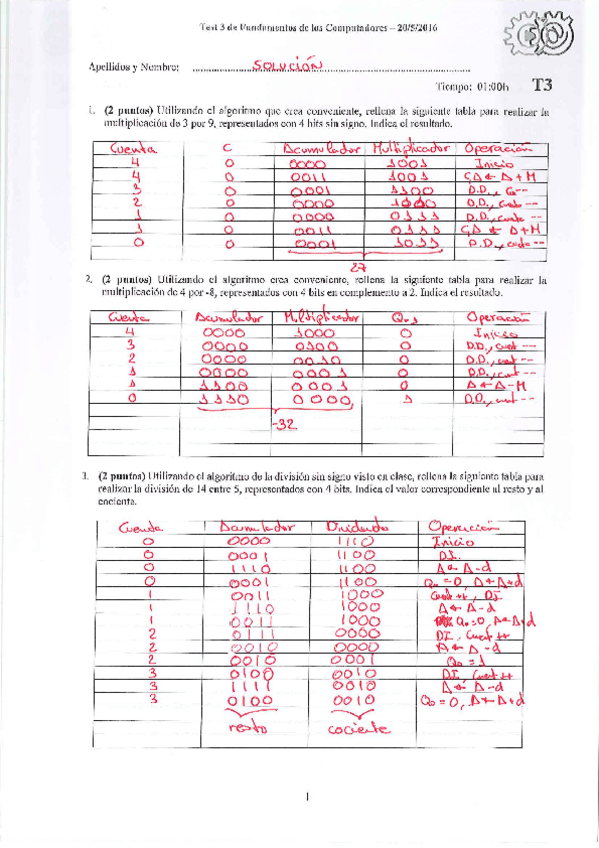 Test 3 de Fundamentos de los Computadores – 20/5/2016
Apellidos y Nombre: SOLUCIÓN
Tiempo: 01:00h T3
1. (2 puntos) Utilizando el algoritmo que crea conveniente, rellena la siguiente tabla para realizar la
multiplicación de 3 por 9, representados con 4 bits sin signo. Indica el resultado.
Cuenta C Acumulador Multiplicador Operación
4 0 0000 1001 Inicio
4 0 0011 1001 CA ← A+M
3 0 0001 1100 D.D., --
2 0 0000 1110 D.D., cuent --
1 0 0000 0111 D.D., cuenta --
1 0 0011 0111 CA ← A+M
0 0 0001 1011 D.D., cuenta --
27
2. (2 puntos) Utilizando el algoritmo crea conveniente, rellena la siguiente tabla para realizar la
multiplicación de 4 por -8, representados con 4 bits en complemento a 2. Indica el resultado.
Cuenta Acumulador Multiplicador Q-1 Operación
4 0000 1000 0 Inicio
3 0000 0100 0 D.D., cuent --
2 0000 0010 0 D.D., cuent --
1 0000 0001 0 D.D., cuent --
1 1100 0001 0 A ← A-M
0 1110 0000 1 D.D., cuent --
-32
3. (2 puntos) Utilizando el algoritmo de la división sin signo visto en clase, rellena la siguiente tabla para
realizar la división de 14 entre 5, representados con 4 bits. Indica el valor correspondiente al resto y al
cociente.
Cuenta Acumulador Dividendo Operación
0 0000 1110 Inicio
0 0001 1100 D.I.
0 1110 1100 A ← A-d
0 0001 1100 Q0=0, A←A+d
1 0011 1000 Cuent ++, DI
1 1110 1000 A ← A-d
1 0011 1000 Q0=0, A←A+d
2 0111 0000 DI, Cuent ++
2 0010 0000 A ← A-d
2 0010 0001 Q0=1
3 0100 0010 D.I, Cuent ++
3 1111 0010 A ← A-d
3 0100 0010 Q0=0, A←A+d
resto cociente
1